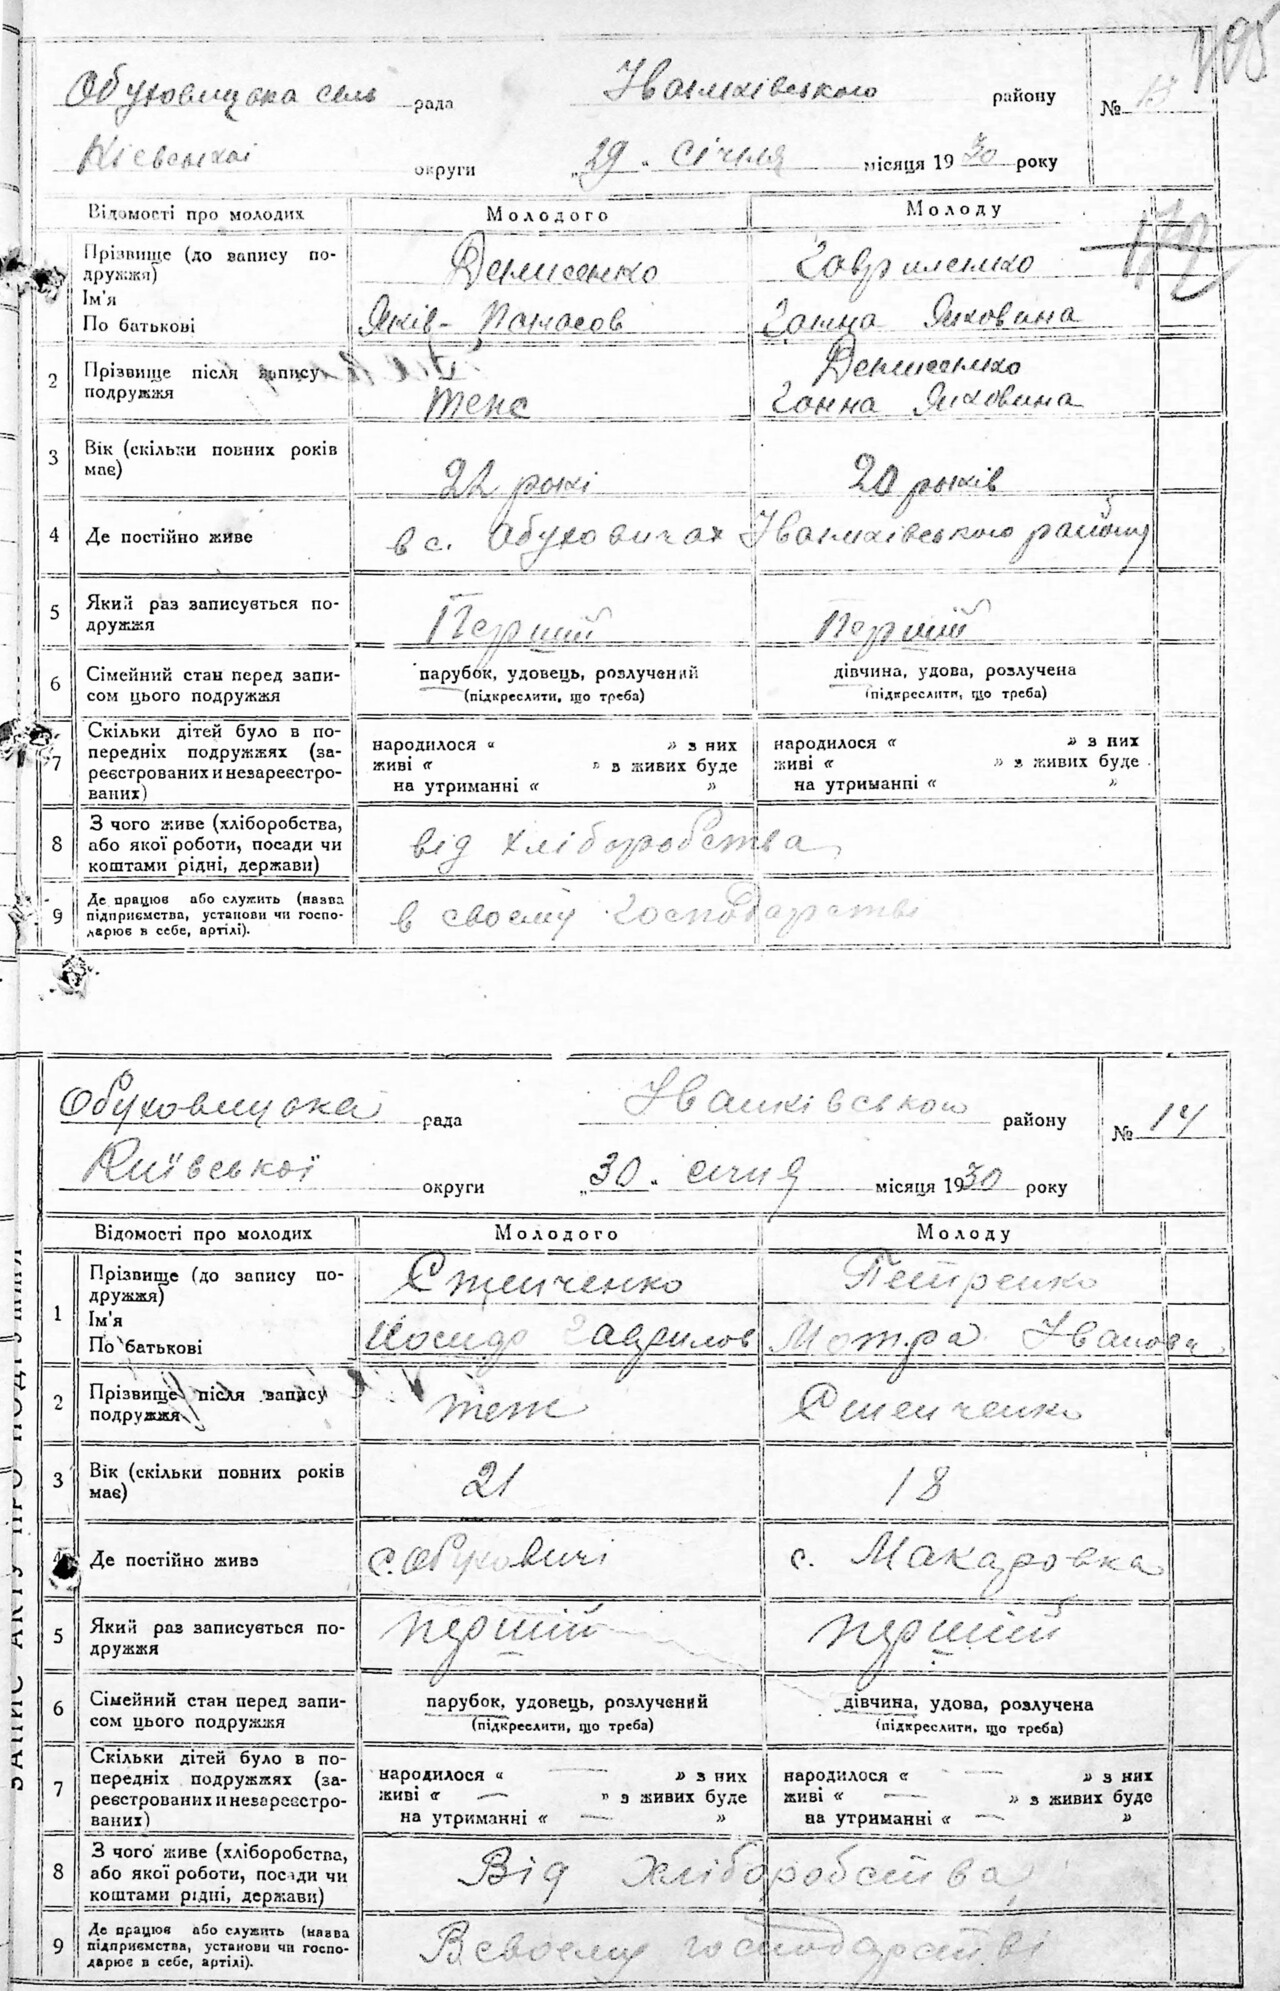 195
Обуховицька сель рада Іванківського району № 13
Кієвської округи „29“ січня місяця 1930 року
Відомості про молодих Молодого Молоду
172
Прізвище (до запису по-
дружжя) Денисенко Гавриленко
Ім'я
По батькові Яків Панасов Ганна Яковина
2 Прізвище після запису
подружжя теж Денисенко
Ганна Яковина
3 Вік (скільки повних років
має) 22 рокі 20 років
4 Де постійно живе в с. Обуховичах Іванківського району
5 Який раз записується по-
дружжя Перший Перший
6 Сімейний стан перед запи-
сом цього подружжя парубок, удовець, розлучений дівчина, удова, розлучена
(підкреслити, що треба) (підкреслити, що треба)
7 Скільки дітей було в по-
передніх подружжях (за-
реєстрованих и незареєстро-
ваних) народилося “ ” з них народилося “ ” з них
живі “ ” з живих буде живі “ ” з живих буде
на утриманні “ ” на утриманні “ ”
8 З чого живе (хліборобства,
або якої роботи, посади чи
коштами рідні, держави) від хліборобства
9 Де працює або служить (назва
підприємства, установи чи госпо-
дарює в себе, артілі). в своему господарстві
Обуховицька рада Іванківського району № 14
Київської округи „30“ січня місяця 1930 року
Відомості про молодих Молодого Молоду
1 Прізвище (до запису по-
дружжя) Степченко Петренко
Ім'я
По батькові Иосип Гаврилов Мотра Іванови
2 Прізвище після запису
подружжя теж Степченко
3 Вік (скільки повних років
має) 21 18
4 Де постійно живе с. Обуховичі с. Макаровка
5 Який раз записується по-
дружжя перший перший
6 Сімейний стан перед запи-
сом цього подружжя парубок, удовець, розлучений дівчина, удова, розлучена
(підкреслити, що треба) (підкреслити, що треба)
7 Скільки дітей було в по-
передніх подружжях (за-
реєстрованих и незареєстро-
ваних) народилося “ — ” з них народилося “ — ” з них
живі “ — ” з живих буде живі “ — ” з живих буде
на утриманні “ — ” на утриманні “ — ”
8 З чого живе (хліборобства,
або якої роботи, посади чи
коштами рідні, держави) Від хліборобства
9 Де працює або служить (назва
підприємства, установи чи госпо-
дарює в себе, артілі). В своему господарстві
ЗАПИС АКТУ ПРО ПОДРУЖЖЯ